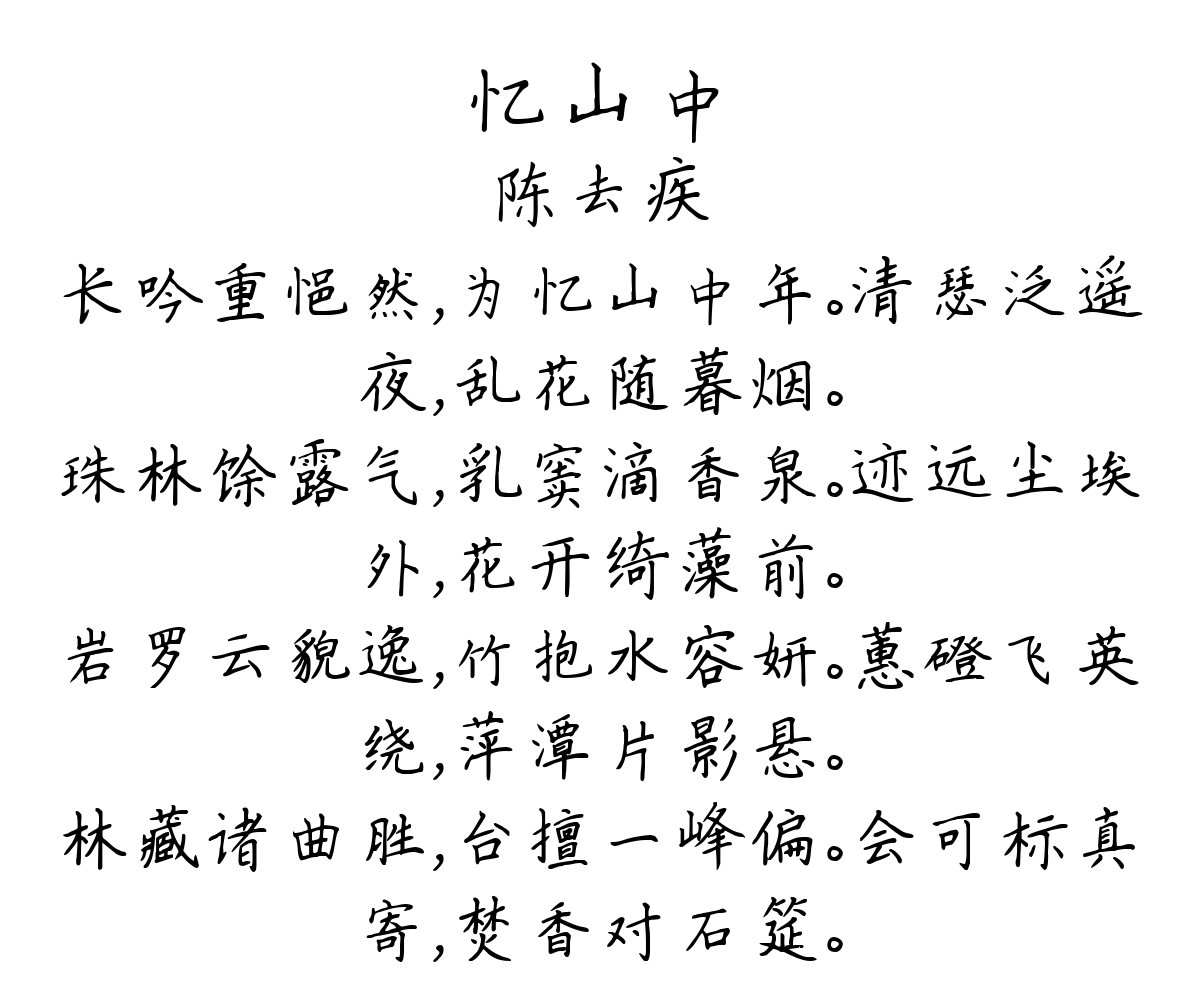 忆山中
陈去疾
长吟重悒然,为忆山中年。清瑟泛遥
夜,乱花随暮烟。
珠林馀露气,乳窦滴香泉。迹远尘埃
外,花开绮藻前。
岩罗云貌逸,竹抱水容妍。蕙磴飞英
绕,萍潭片影悬。
林藏诸曲胜,台擅一峰偏。会可标真
寄,焚香对石筵。